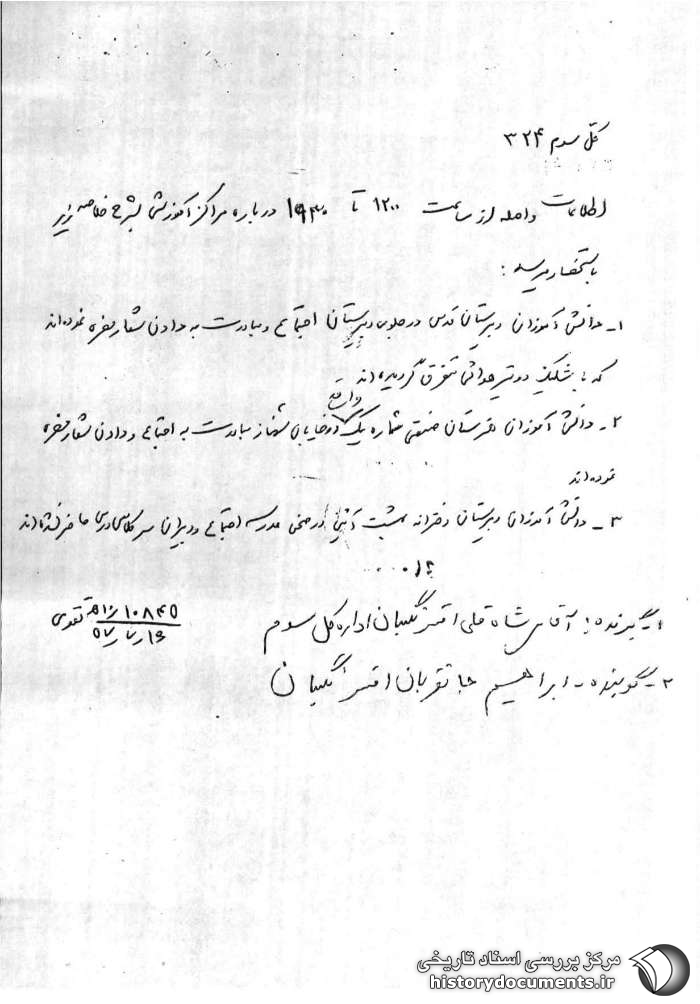 کل سوم ۳۲۴
اطلاعات واصله از ساعت ۱۲۰۰ تا ۱۹۳۰ درباره مراکز آموزشی بشرح خلاصه زیر
باستحضار میرسد :
۱- دانش آموزان دبیرستان قدس در جلوی دبیرستان اجتماع و مبادرت به دادن شعار مضره نموده‌اند
که با شلیک دو تیر هوائی متفرق گردیده‌اند
۲- دانش آموزان هنرستان صنعتی شماره یک واقع در خیابان شهناز مبادرت به اجتماع و دادن شعار مضره
نموده‌اند
۳- دانش آموزان دبیرستان دخترانه بهشت آئین در صحن مدرسه اجتماع و دبیران سر کلاس درس حاضر نشده‌اند
۱- گیرنده : آقای شاه قلی افسر نگهبان اداره کل سوم
۲- گوینده - ابراهیم حاتقربان افسر نگهبان
۱۰۸۴۵/ه‍ ۱۰
۵۷/۷/۱۶
تقدسی
مرکز بررسی اسناد تاریخی
historydocuments.ir